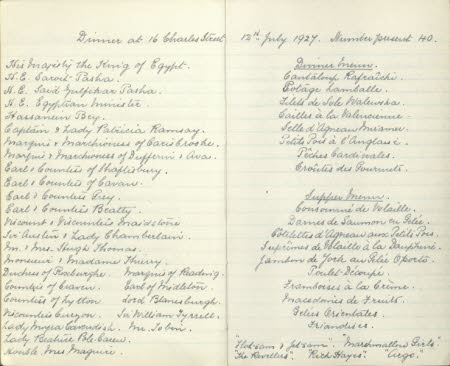 Dinner at 16 Charles Street 12th July 1927. Number present 40.
His Majesty the King of Egypt.
H.E. Sarwat Pasha.
H.E. Said Zulfikar Pasha.
H.E. Egyptian Minister.
Hassanein Bey.
Captain & Lady Patricia Ramsay.
Marquis & Marchioness of Carisbrooke.
Marquis & Marchioness of Dufferin & Ava.
Earl & Countess of Shaftesbury.
Earl & Countess of Cavan.
Earl & Countess Grey.
Earl & Countess Beatty.
Viscount & Viscountess Maidstone
Sir Austin & Lady Chamberlain.
Mr. & Mrs. Hugh Thomas.
Monsieur & Madame Thierry.
Duchess of Roxburghe. Marquis of Reading.
Countess of Craven. Earl of Midleton.
Countess of Lytton. Lord Blanesburgh.
Viscountess Curzon. Sir William Tyrrell.
Lady Myra Cavendish. Mr. Tobin.
Lady Beatrice Pole-Carew.
Honble. Mrs. Maguire.
Dinner Menu.
Cantaloup Rafraîchi.
Potage Lamballe.
Filets de Sole Walewska.
Cailles à la Valencienne.
Selle d'Agneau Miramer.
Petits Pois à l'Anglaise.
Pêches Cardinales.
Croûtes des Gourmets.
Supper Menu.
Consommé de Volaille.
Darnes de Saumon en Gelée.
Côtelettes d'Agneau aux Petits Pois.
Suprêmes de Volaille à la Dauphine.
Jambon de York au Gelée Oporto.
Poulet Découpé.
Framboises à la Crème.
Macédoines de Fruits.
Gelées Orientales.
Friandises.
"Flotsam & Jetsam". "Marshmallow Girls"
"The Revellers". "Rich Hayes".